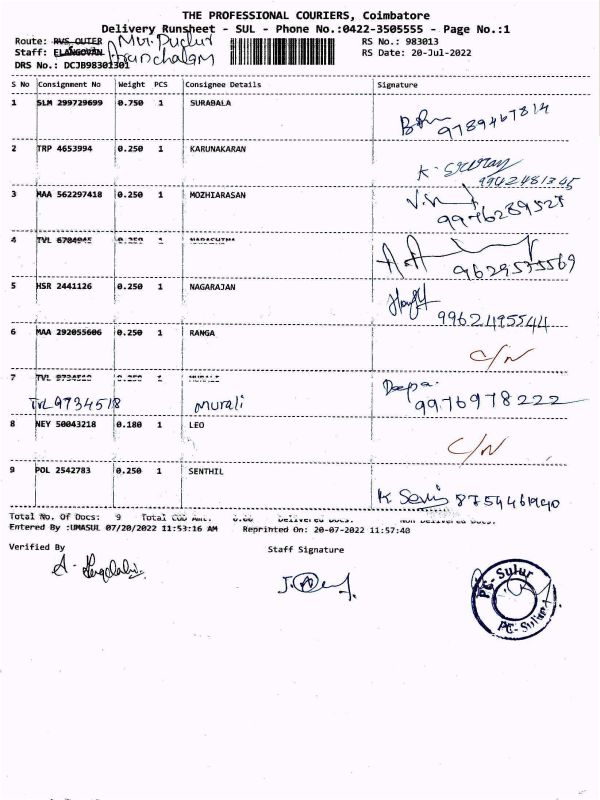 THE PROFESSIONAL COURIERS, Coimbatore
Delivery Runsheet - SUL - Phone No.:0422-3505555 - Page No.:1
Route: RVS OUTER
RS No.: 983013
Staff: ELANGOVAN Arunchalam
RS Date: 20-Jul-2022
DRS No.: DCJB98301301
S No Consignment No Weight PCS Consignee Details Signature
1 SLM 299729699 0.750 1 SURABALA
9789467814
2 TRP 4653994 0.250 1 KARUNAKARAN
9942481345
3 MAA 562297418 0.250 1 MOZHIARASAN
9976289527
4 TVL 6784945 0.250 1 NARASHIMA
9629535569
5 HSR 2441126 0.250 1 NAGARAJAN
9962495544
6 MAA 292055606 0.250 1 RANGA
C/N
7 TVL 9734518 0.250 1 MURALI
Deepa.
TVL 9734518 Murali 9976978222
8 NEY 50043218 0.180 1 LEO
C/N
9 POL 2542783 0.250 1 SENTHIL
8754461940
Total No. Of Docs: 9 Total COD Amt: 0.00 Delivered Docs: Non Delivered Docs:
Entered By :UMASUL 07/20/2022 11:53:16 AM Reprinted On: 20-07-2022 11:57:40
Verified By
Staff Signature
PC-Sulur
PC-Sulur